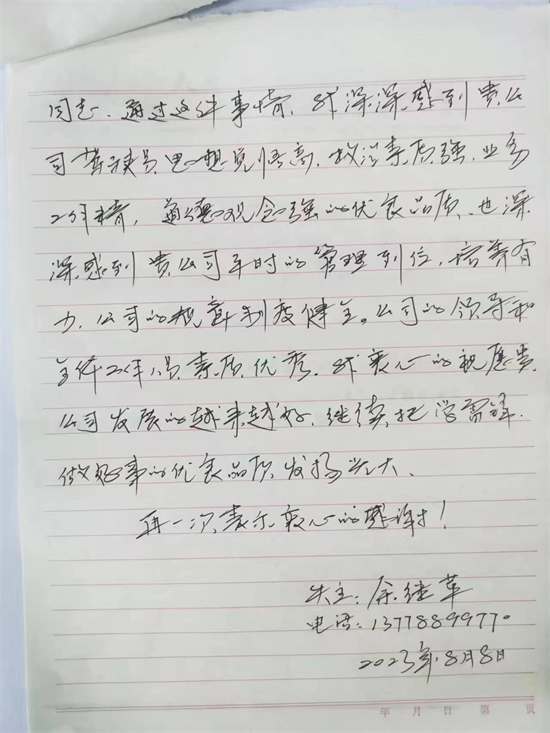 同志、通过这件事情，我深深感到贵公
司驾驶员思想觉悟高，政治素质强，业务
工作精，道德观念强的优良品质、也深
深感到贵公司平时的管理到位，培养有
力，公司的规章制度健全。公司的领导和
全体工作人员素质优秀，我衷心的祝愿贵
公司发展的越来越好，继续把学雷锋.
做好事的优良品质发扬光大、
再一次表示衷心的感谢！
失主：余继革
电话：13778899770
2023年8月8日
年 月 日 第 页